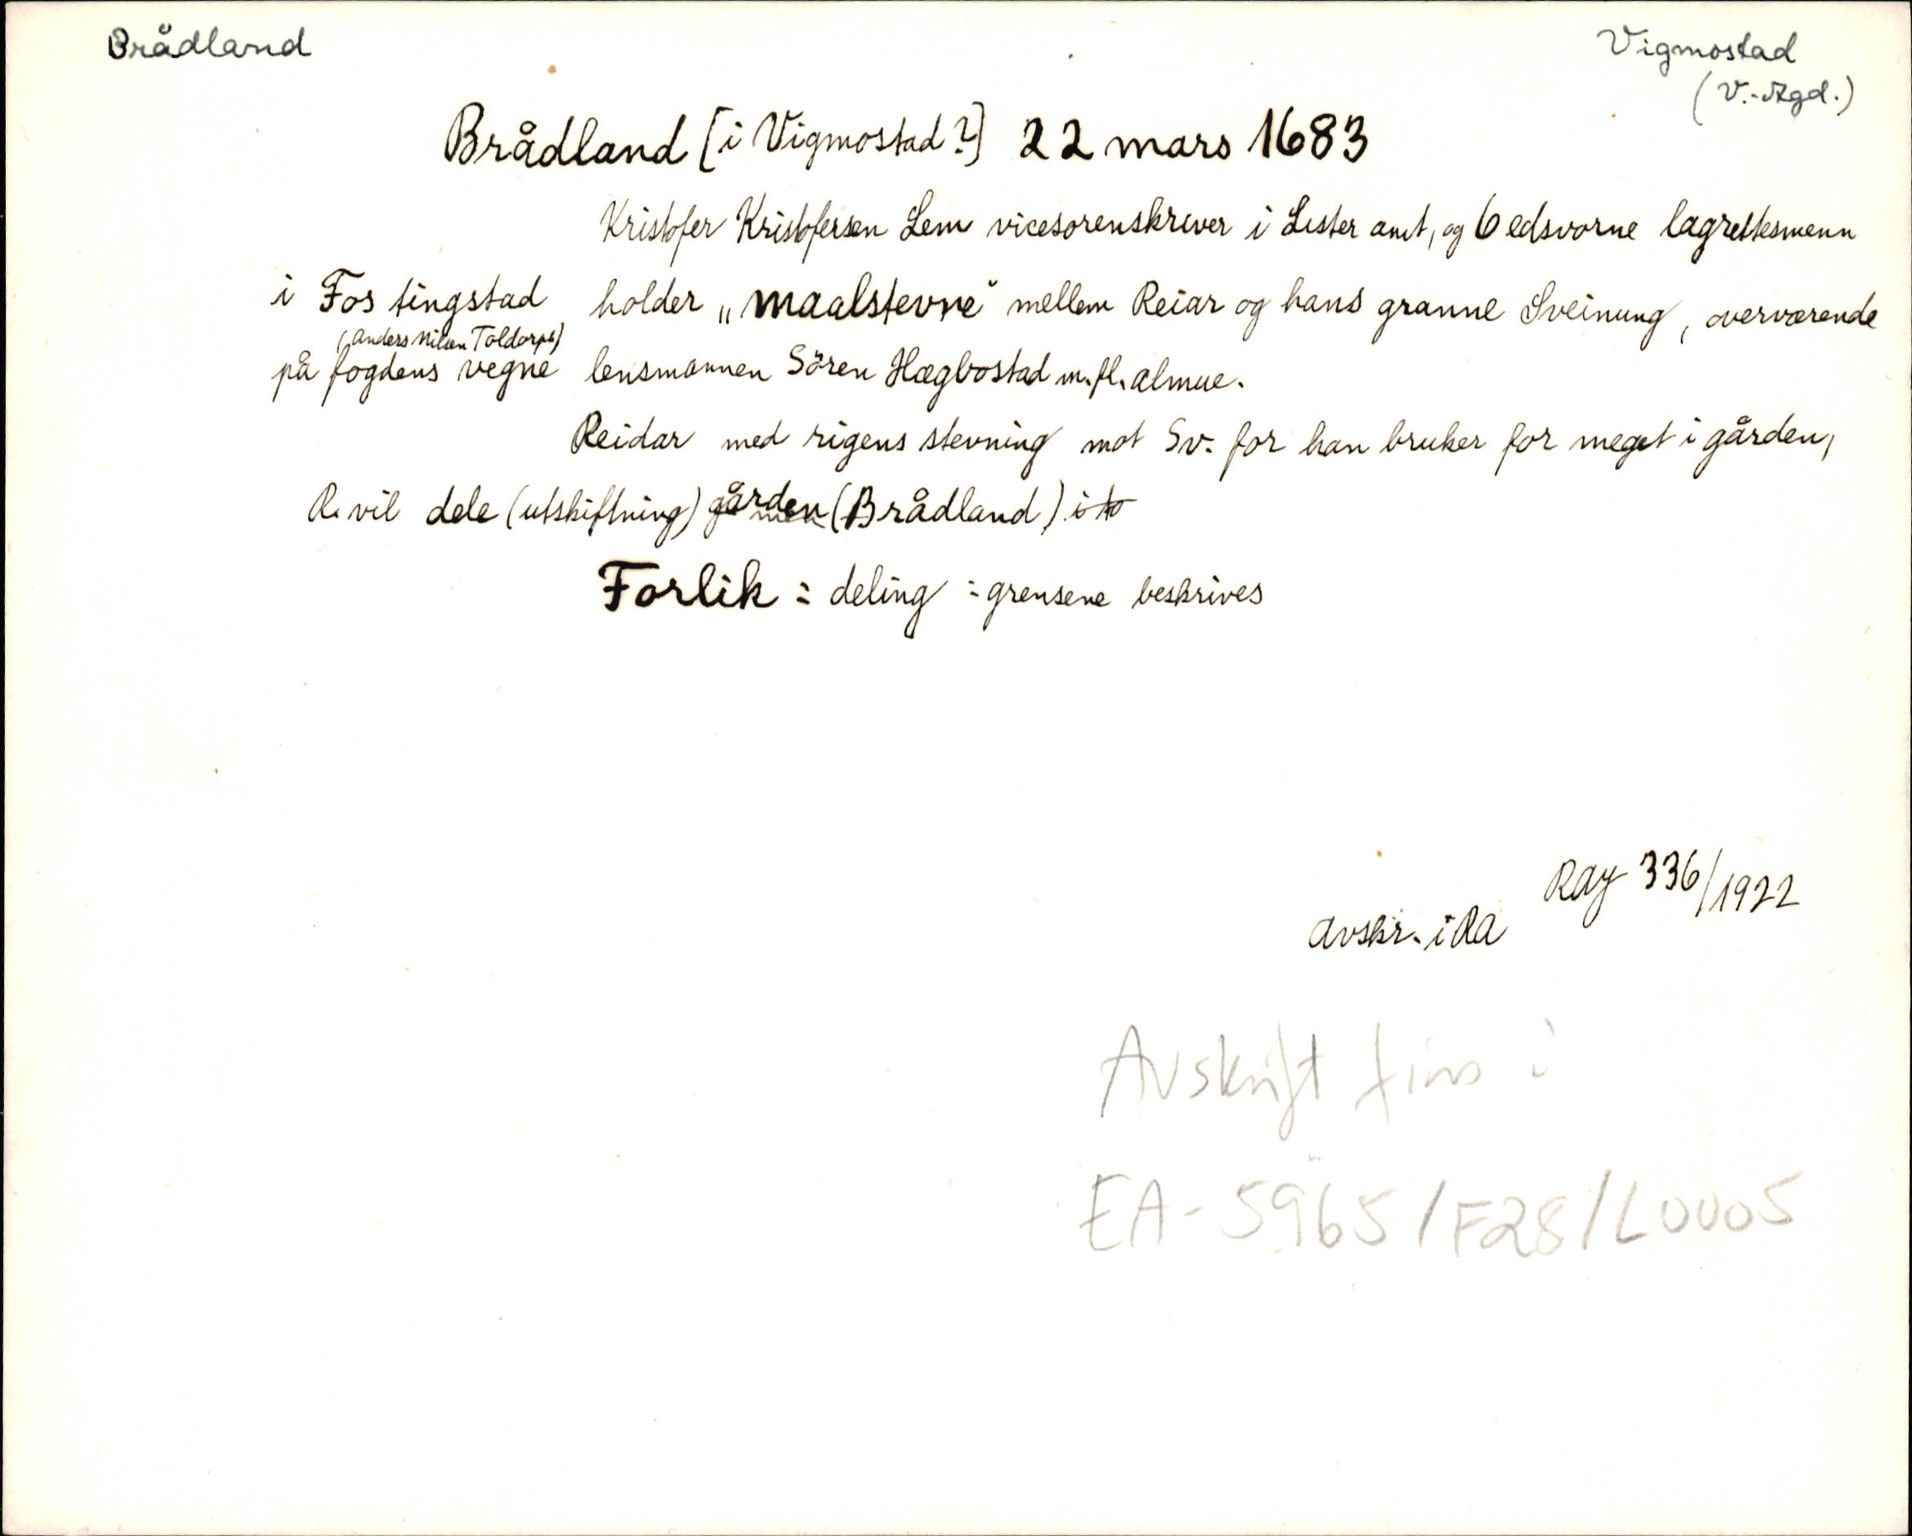 Brådland
Vigmostad
(V.-Agd.)
Brådland [i Vigmostad?] 22 mars 1683
Kristofer Kristofersen Lem vicesorenskriver i Lister amt, og 6 edsvorne lagrettesmenn
i Fos tingstad holder „maalstevne" mellem Reiar og hans granne Sveinung, overværende
(Anders Nilsen Toldorph)
på fogdens vegne lensmannen Sören Hægbostad m.fl. almue.
Reidar med rigens stevning mot Sv. for han bruker for meget i gården,
R. vil dele (utskiftning) gården (Brådland) i to
Forlik : deling : grensene beskrives
RAJ 336/1922
Avskr. i RA
Avskrift fins i
EA-5965/F28/L0005